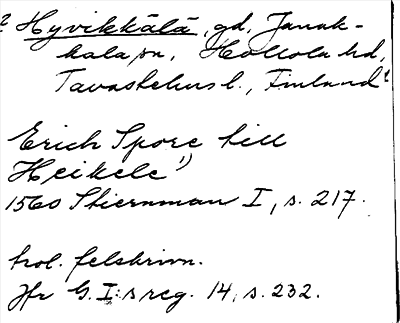 ? Hyvikkälä, gd, Janak-
kala sn, Hollola hd,
Tavastehus l., Finland?
Erich Spore till
Heikele 1)
1560 Stiernman I, s. 217.
trol. felskrivn.
Jfr G. I:s reg. 14, s. 232.